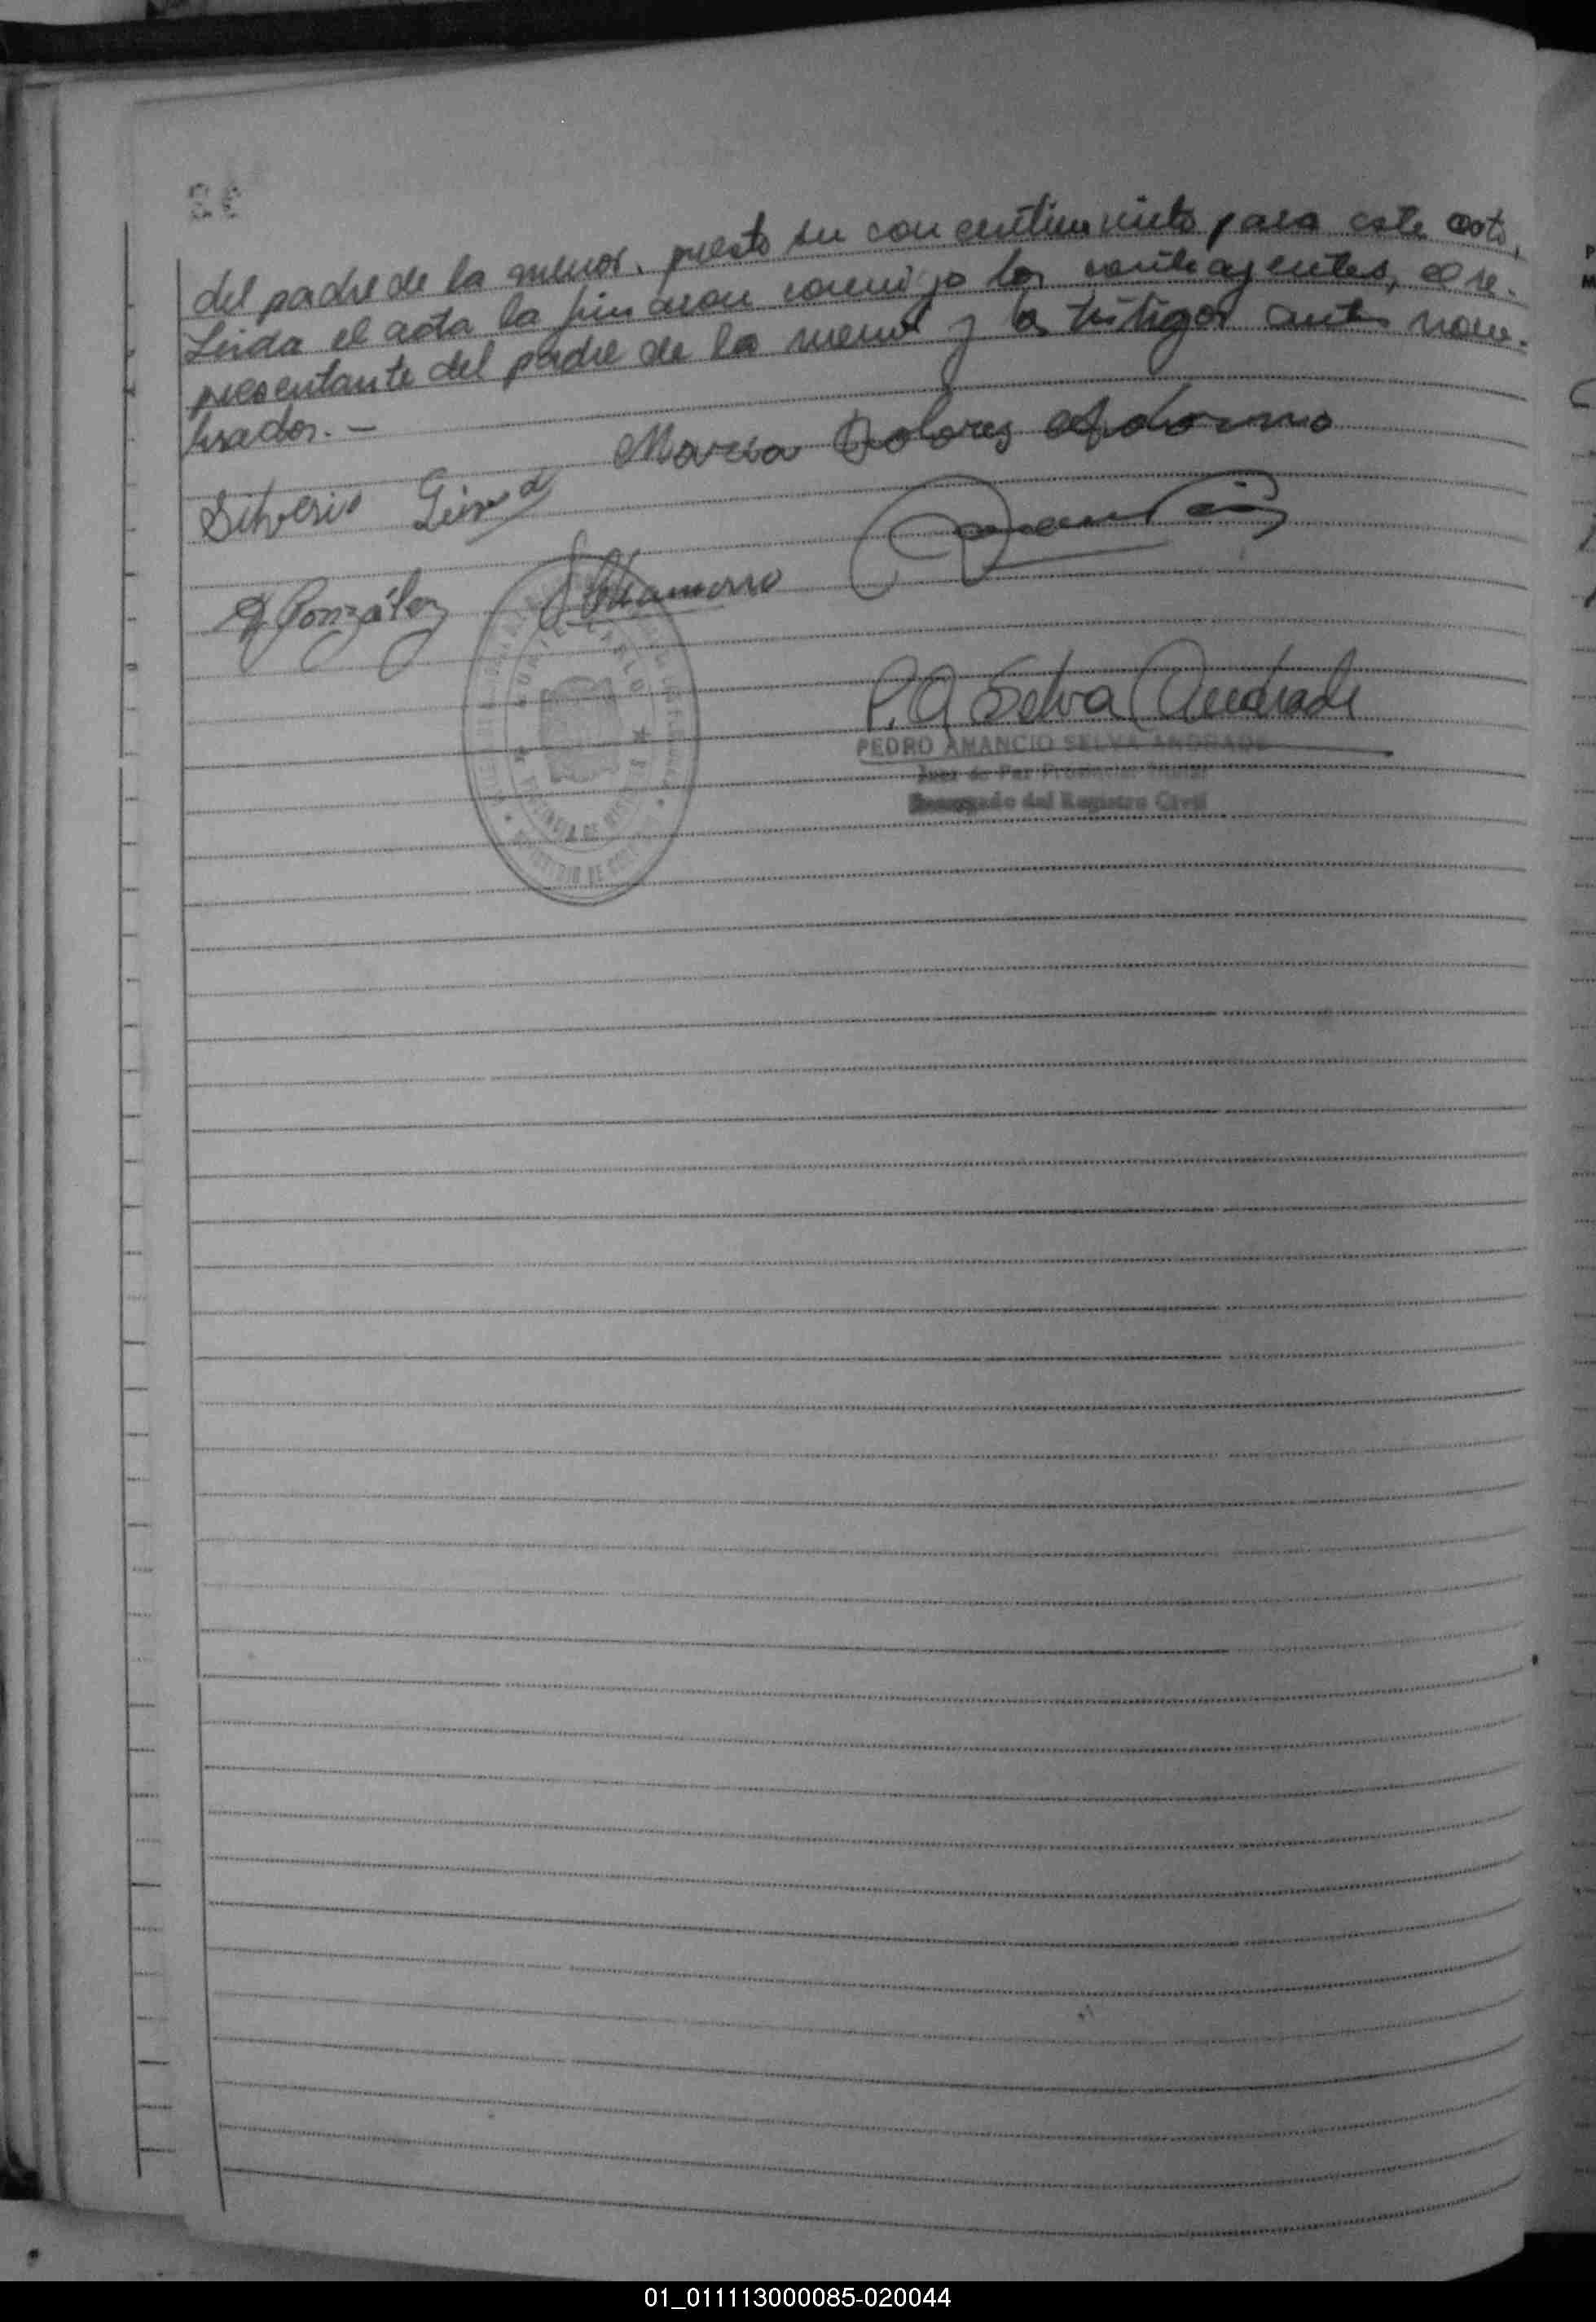 del padre de la menor, presto su concentimiento para este acto,
Leida el acta la firmaron conmigo los contrayentes, el re-
presentante del padre de la menor y los testigos antes nom-
brados. —
Maria Dolores Adorno
Silverio
A González Chamorro
P. A Selva Andrade
PEDRO AMANCIO SELVA ANDRADE
Juez de Paz Provincial Titular
Encargado del Registro Civil
PROVINCIA DE MISIONES
01_011113000085-020044